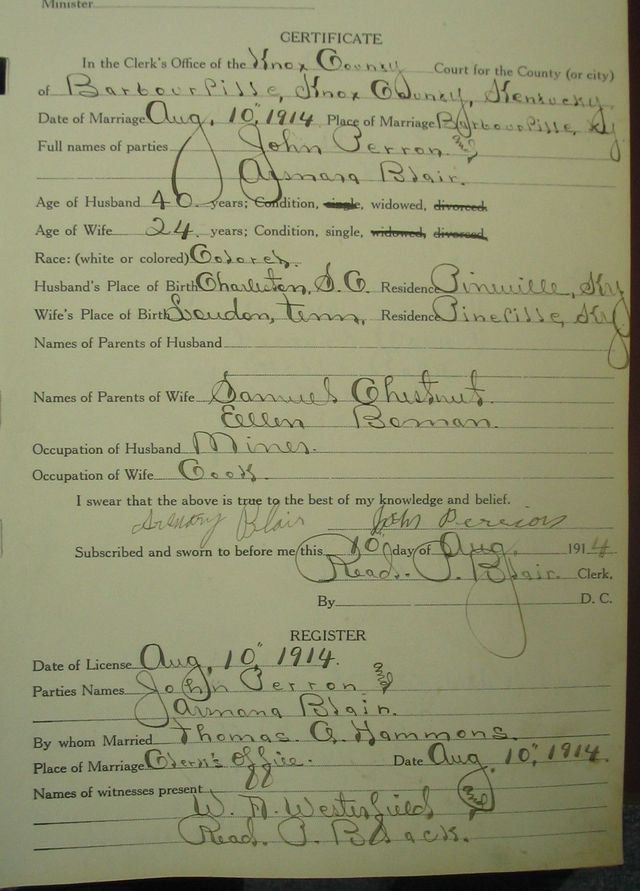 Minister
CERTIFICATE
In the Clerk's Office of the Knox County Court for the County (or city)
of Barbourville, Knox County, Kentucky.
Date of Marriage Aug. 10", 1914 Place of Marriage Barbourville, Ky
Full names of parties John Perron and
Armana Blair.
Age of Husband 40. years; Condition, single, widowed, divorced
Age of Wife 24. years; Condition, single, widowed, divorced
Race: (white or colored) Colored.
Husband's Place of Birth Charleston, S.C. Residence Pineville, Ky
Wife's Place of Birth Loudon, Tenn, Residence Pineville, Ky
Names of Parents of Husband
Names of Parents of Wife Samuel Chestnut.
Ellen Boman.
Occupation of Husband Miner.
Occupation of Wife Cook.
I swear that the above is true to the best of my knowledge and belief.
Blair John
Subscribed and sworn to before me this 10" day of Aug. 1914
Read. P. Clerk.
By D. C.
REGISTER
Date of License Aug, 10", 1914.
Parties Names John Perron and
Armana Blair.
By whom Married Thomas. G. Hammons.
Place of Marriage Clerk's Office. Date Aug. 10", 1914.
Names of witnesses present
W. H. Westerfield and
Read. P. Black.